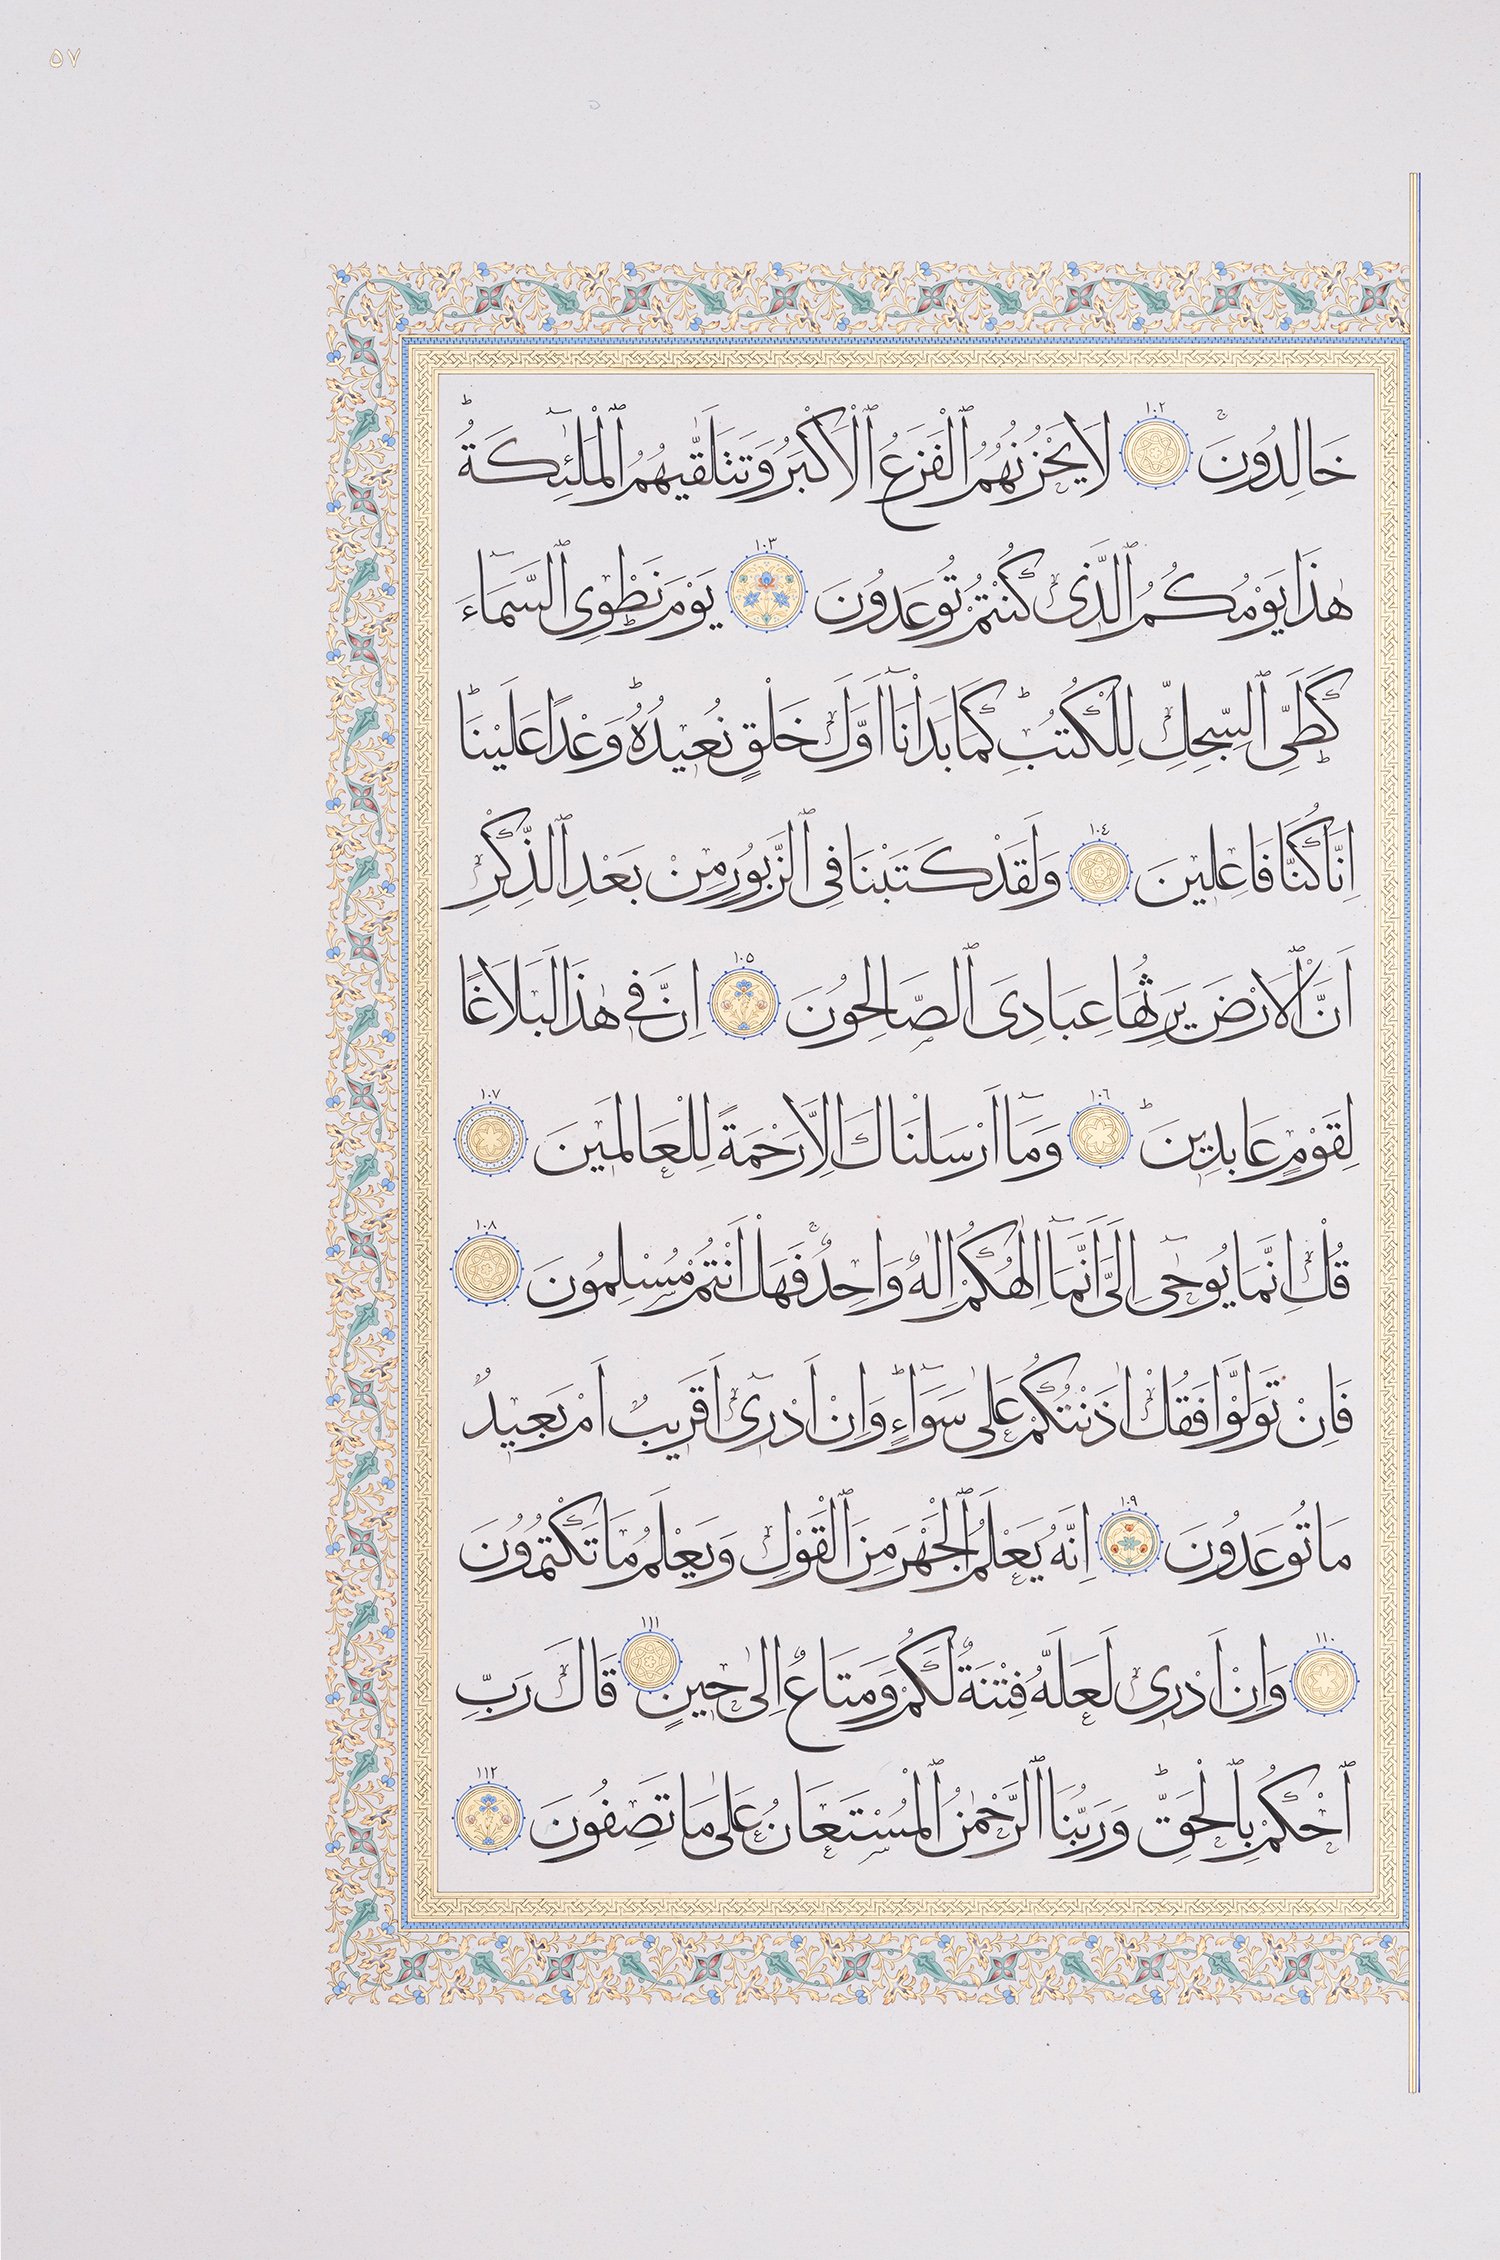 ٥٧
خَالِدُونَۚ ١٠٢ لَا يَحْزُنُهُمُ ٱلْفَزَعُ ٱلْاَكْبَرُ وَتَتَلَقّٰيهُمُ ٱلْمَلٰٓئِكَةُؕ
هٰذَا يَوْمُكُمُ ٱلَّذٖى كُنْتُمْ تُوعَدُونَ ١٠٣ يَوْمَ نَطْوِى ٱلسَّمَٓاءَ
كَطَىِّ ٱلسِّجِلِّ لِلْكُتُبِؕ كَمَا بَدَاْنَٓا اَوَّلَ خَلْقٍ نُعٖيدُهُؕ وَعْدًا عَلَيْنَاؕ
اِنَّا كُنَّا فَاعِلٖينَ ١٠٤ وَلَقَدْ كَتَبْنَا فِى ٱلزَّبُورِ مِنْ بَعْدِ ٱلذِّكْرِ
اَنَّ ٱلْاَرْضَ يَرِثُهَا عِبَادِىَ ٱلصَّالِحُونَ ١٠٥ اِنَّ فٖى هٰذَا لَبَلَاغًا
لِقَوْمٍ عَابِدٖينَؕ ١٠٦ وَمَٓا اَرْسَلْنَاكَ اِلَّا رَحْمَةً لِلْعَالَمٖينَ ١٠٧
قُلْ اِنَّمَا يُوحٰٓى اِلَىَّ اَنَّمَٓا اِلٰهُكُمْ اِلٰهٌ وَاحِدٌۚ فَهَلْ اَنْتُمْ مُسْلِمُونَ ١٠٨
فَاِنْ تَوَلَّوْا فَقُلْ اٰذَنْتُكُمْ عَلٰى سَوَٓاءٍؕ وَاِنْ اَدْرٖٓى اَقَرٖيبٌ اَمْ بَعٖيدٌ
مَا تُوعَدُونَ ١٠٩ اِنَّهُ يَعْلَمُ ٱلْجَهْرَ مِنَ ٱلْقَوْلِ وَيَعْلَمُ مَا تَكْتُمُونَ
١١٠ وَاِنْ اَدْرٖى لَعَلَّهُ فِتْنَةٌ لَكُمْ وَمَتَاعٌ اِلٰى حٖينٍ ١١١ قَالَ رَبِّ
ٱحْكُمْ بِٱلْحَقِّؕ وَرَبُّنَا ٱلرَّحْمٰنُ ٱلْمُسْتَعَانُ عَلٰى مَا تَصِفُونَ ١١٢